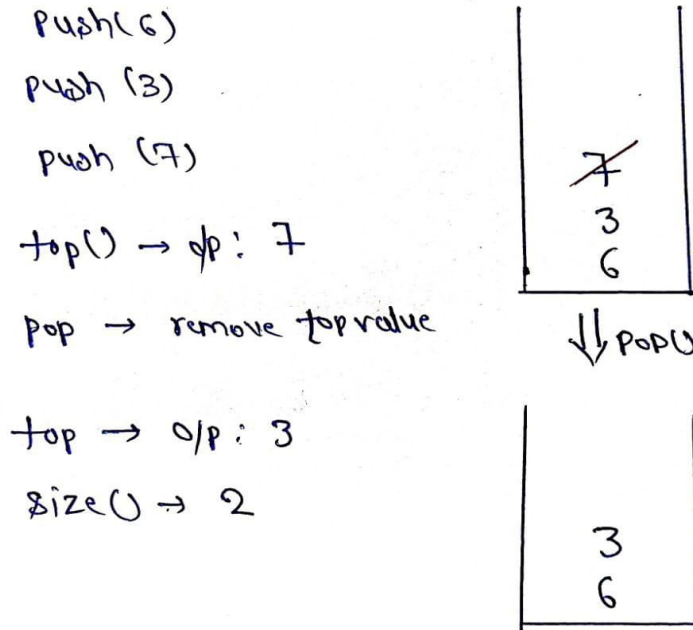 push(6)
push (3)
push (7)
top() → o/p: 7
pop → remove top value
top → o/p: 3
size() → 2
7
3
6
⇓ pop()
3
6